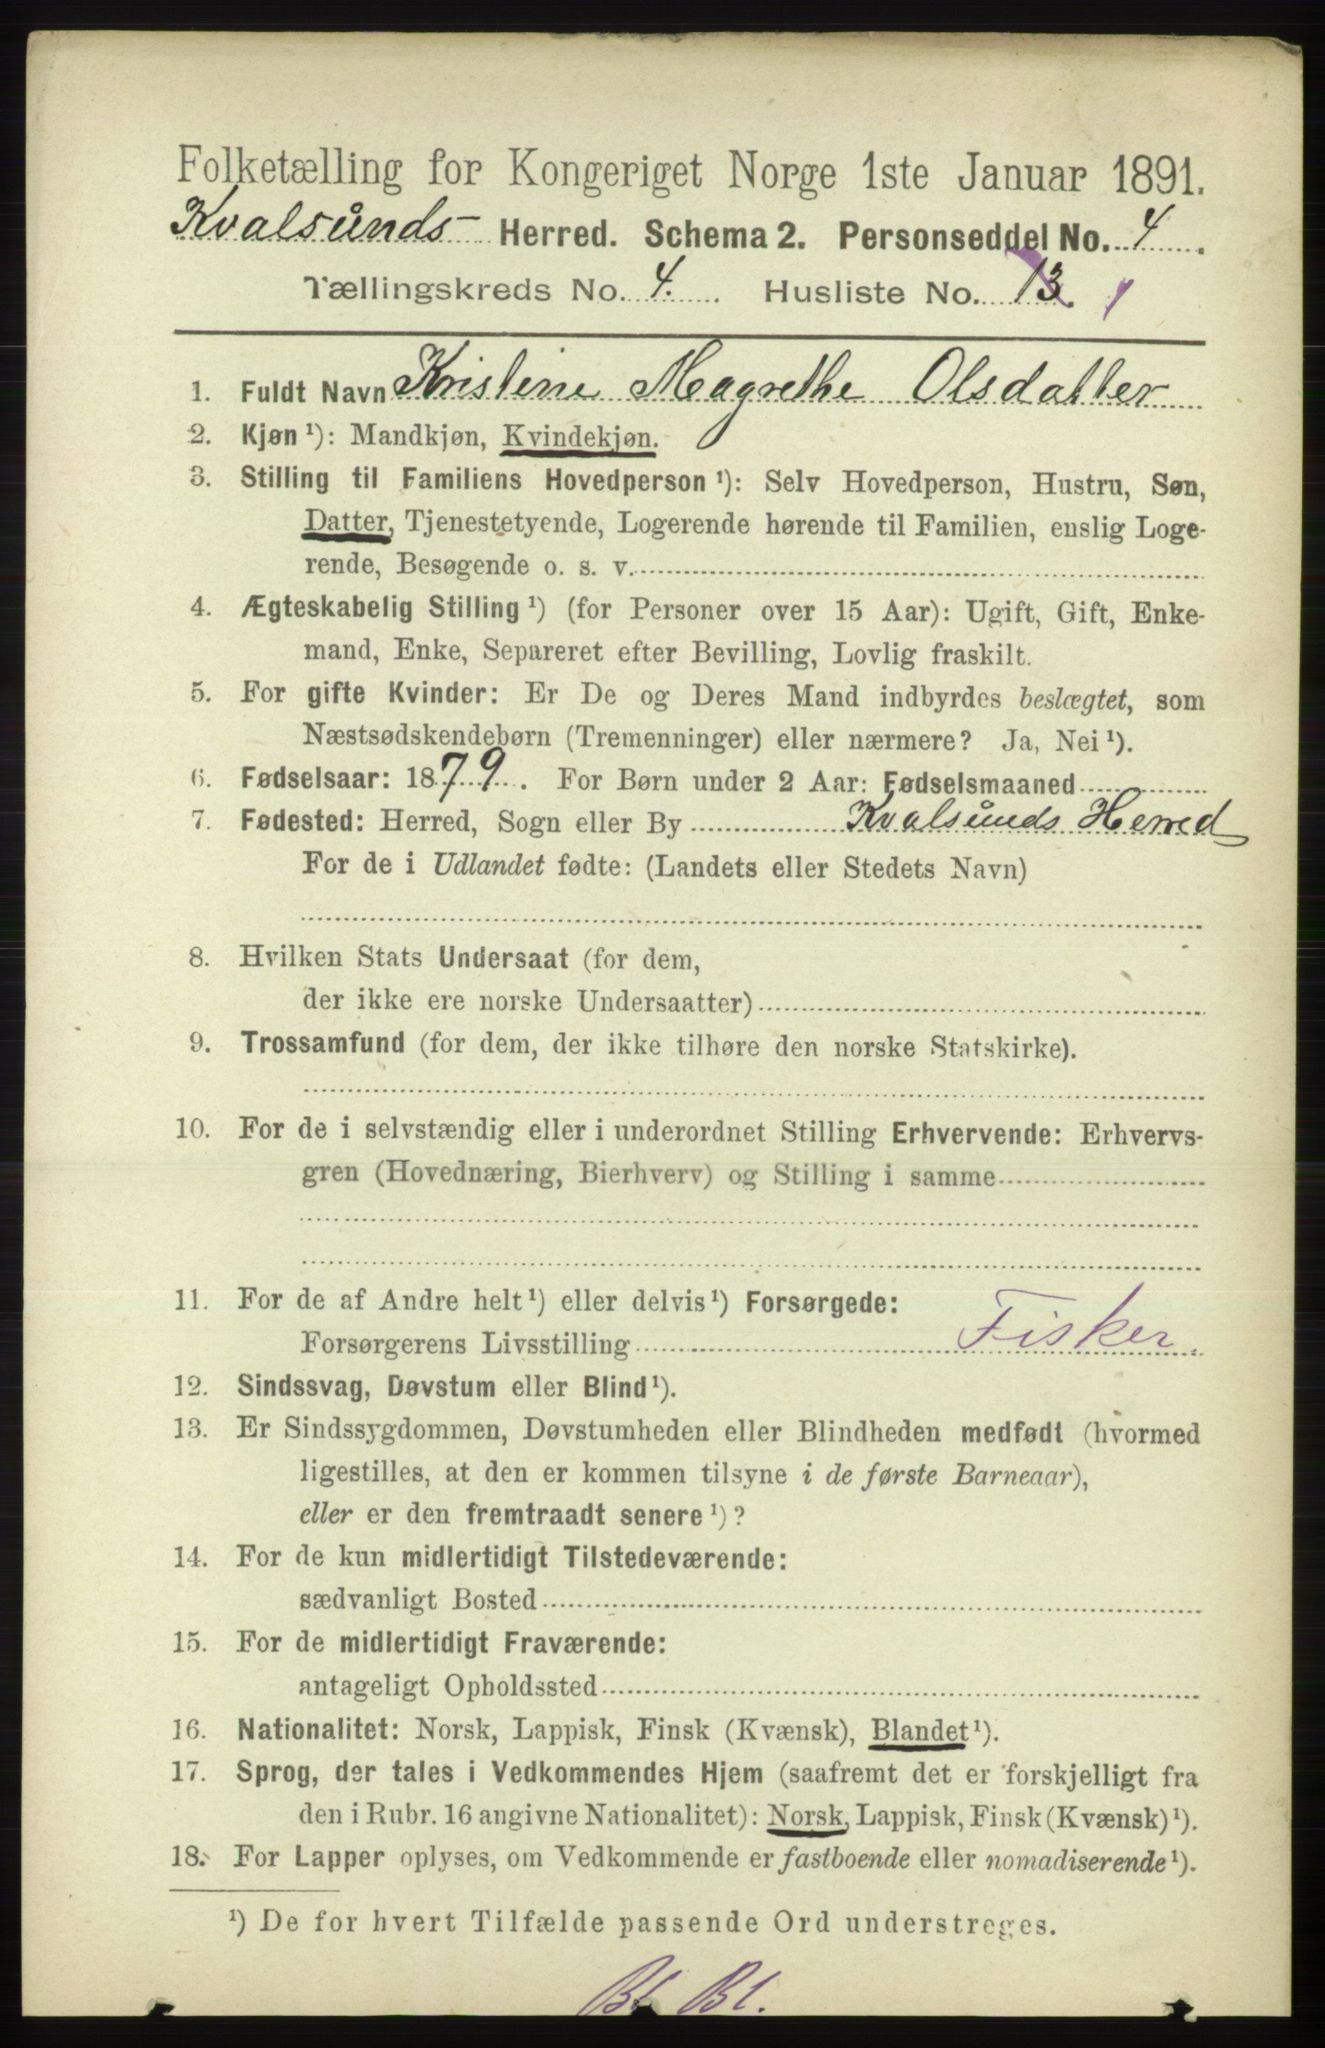 Folketælling for Kongeriget Norge 1ste Januar 1891.
Kvalsunds Herred. Schema 2. Personseddel No. 4.
Tællingskreds No. 4. Husliste No. 13. 1
1. Fuldt Navn Kristine Magrethe Olsdatter
2. Kjøn ¹): Mandkjøn, Kvindekjøn.
3. Stilling til Familiens Hovedperson ¹): Selv Hovedperson, Hustru, Søn,
Datter, Tjenestetyende, Logerende hørende til Familien, enslig Loge-
rende, Besøgende o. s. v.
4. Ægteskabelig Stilling ¹) (for Personer over 15 Aar): Ugift, Gift, Enke-
mand, Enke, Separeret efter Bevilling, Lovlig fraskilt.
5. For gifte Kvinder: Er De og Deres Mand indbyrdes beslægtet, som
Næstsødskendebørn (Tremenninger) eller nærmere? Ja, Nei ¹).
6. Fødselsaar: 1879. For Børn under 2 Aar: Fødselsmaaned
7. Fødested: Herred, Sogn eller By Kvalsunds Herred
For de i Udlandet fødte: (Landets eller Stedets Navn)
8. Hvilken Stats Undersaat (for dem,
der ikke ere norske Undersaatter)
9. Trossamfund (for dem, der ikke tilhøre den norske Statskirke).
10. For de i selvstændig eller i underordnet Stilling Erhvervende: Erhvervs-
gren (Hovednæring, Bierhverv) og Stilling i samme
11. For de af Andre helt ¹) eller delvis ¹) Forsørgede:
Forsørgerens Livsstilling Fisker.
12. Sindssvag, Døvstum eller Blind ¹).
13. Er Sindssygdommen, Døvstumheden eller Blindheden medfødt (hvormed
ligestilles, at den er kommen tilsyne i de første Barneaar),
eller er den fremtraadt senere ¹)?
14. For de kun midlertidigt Tilstedeværende:
sædvanligt Bosted
15. For de midlertidigt Fraværende:
antageligt Opholdssted
16. Nationalitet: Norsk, Lappisk, Finsk (Kvænsk), Blandet ¹).
17. Sprog, der tales i Vedkommendes Hjem (saafremt det er forskjelligt fra
den i Rubr. 16 angivne Nationalitet): Norsk, Lappisk, Finsk (Kvænsk) ¹).
18. For Lapper oplyses, om Vedkommende er fastboende eller nomadiserende ¹).
¹) De for hvert Tilfælde passende Ord understreges.
Bl. Bl.